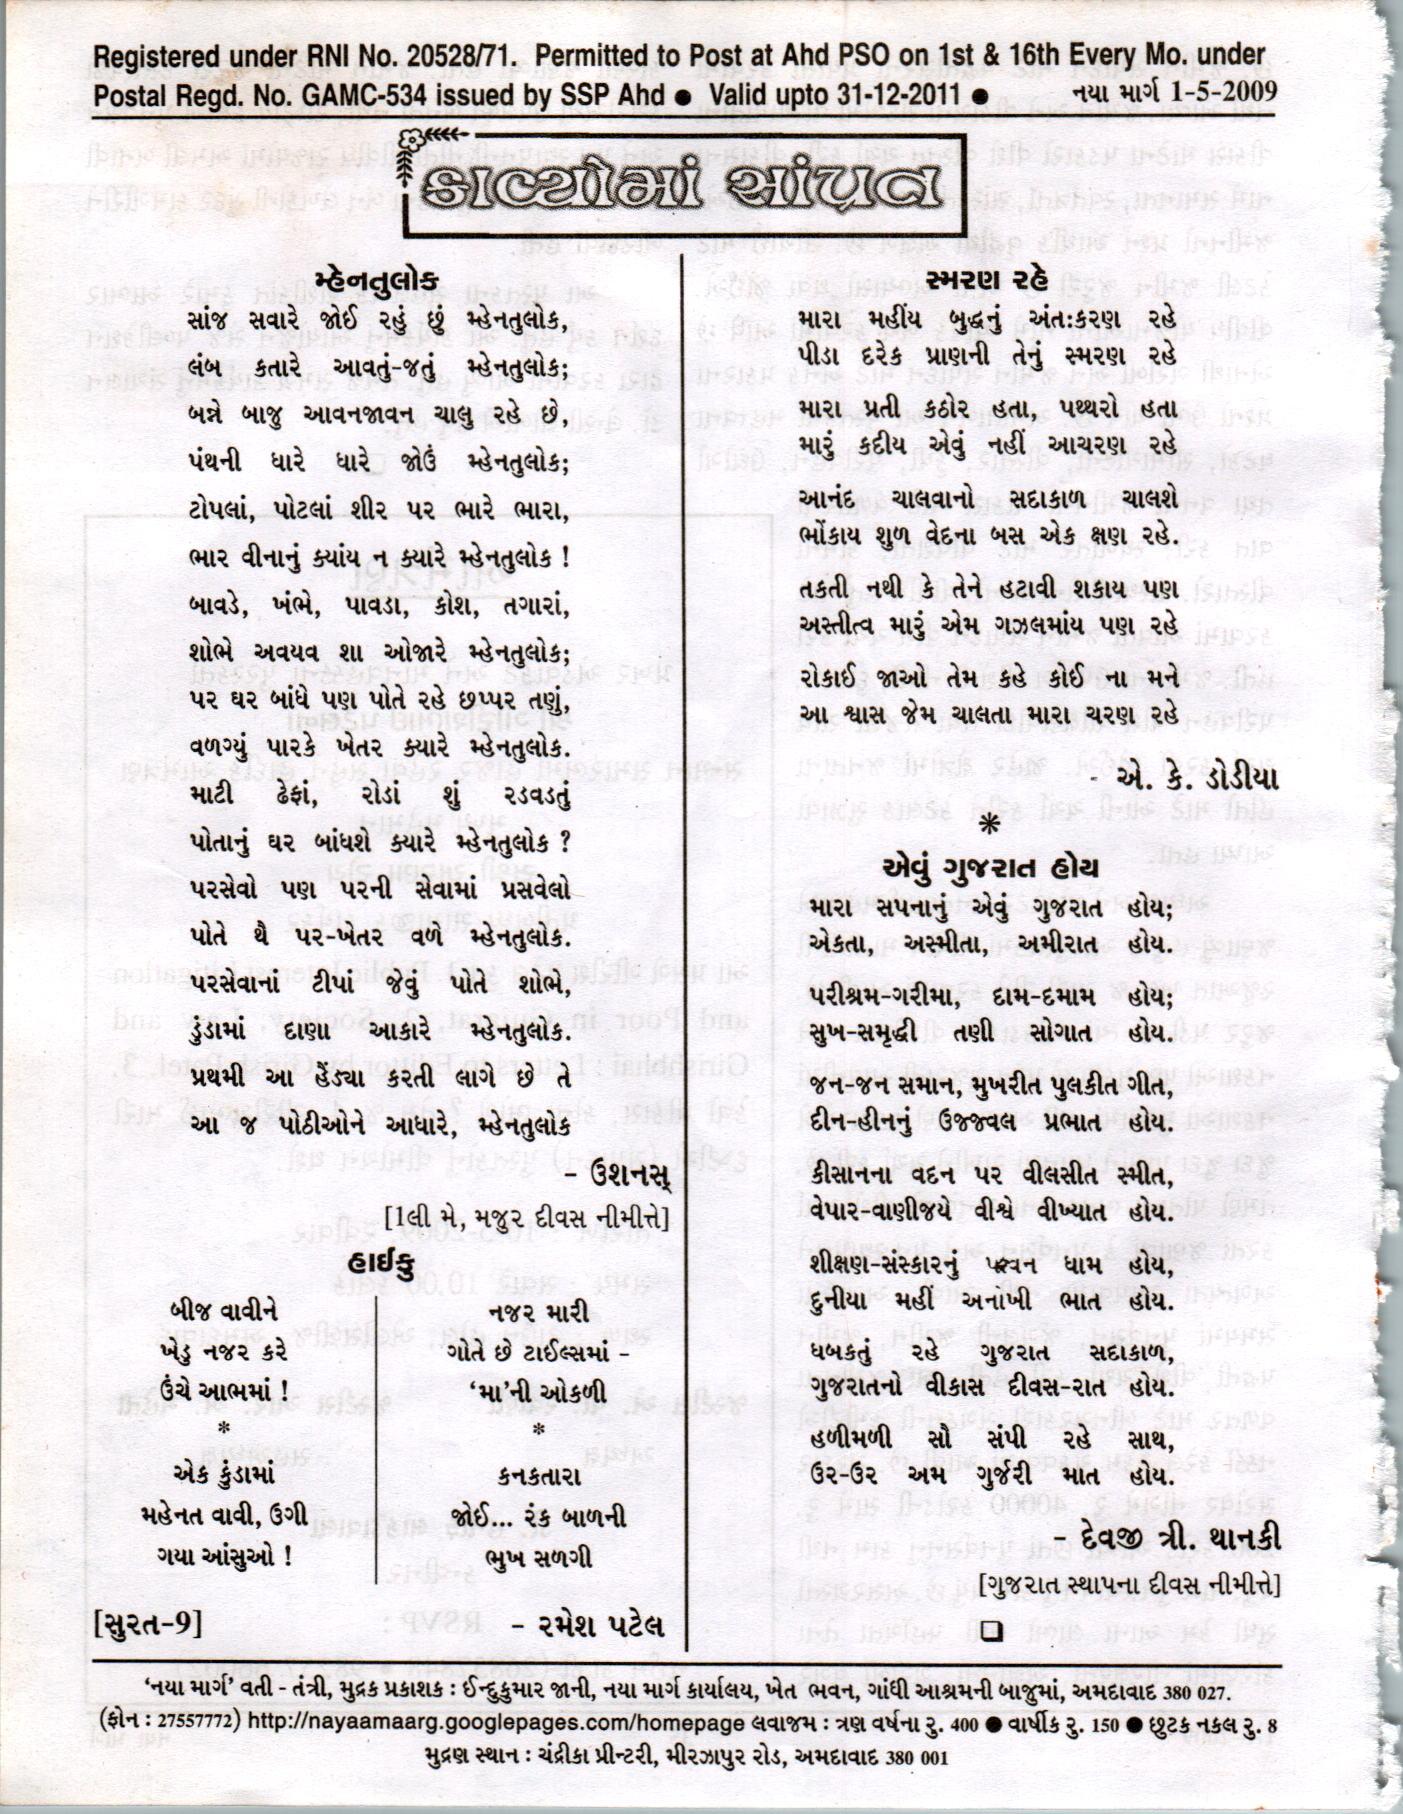 Registered under RNI No. 20528/71. Permitted to Post at Ahd PSO on 1st & 16th Every Mo. under
Postal Regd. No. GAMC-534 issued by SSP Ahd ● Valid upto 31-12-2011 ● નયા માર્ગ 1-5-2009
કાવ્યોમાં સાંપ્રત
મ્હેનતુલોક
સાંજ સવારે જોઈ રહું છું મ્હેનતુલોક,
લંબ કતારે આવતું-જતું મ્હેનતુલોક;
બન્ને બાજુ આવનજાવન ચાલુ રહે છે,
પંથની ધારે ધારે જોઉં મ્હેનતુલોક;
ટોપલાં, પોટલાં શીર પર ભારે ભારા,
ભાર વીનાનું ક્યાંય ન ક્યારે મ્હેનતુલોક !
બાવડે, ખંભે, પાવડા, કોશ, તગારાં,
શોભે અવયવ શા ઓજારે મ્હેનતુલોક;
પર ઘર બાંધે પણ પોતે રહે છપ્પર તણું,
વળગ્યું પારકે ખેતર ક્યારે મ્હેનતુલોક.
માટી ઢેફાં, રોડાં શું રડવડતું
પોતાનું ઘર બાંધશે ક્યારે મ્હેનતુલોક ?
પરસેવો પણ પરની સેવામાં પ્રસવેલો
પોતે થૈ પર-ખેતર વળે મ્હેનતુલોક.
પરસેવાનાં ટીપાં જેવું પોતે શોભે,
ડુંડામાં દાણા આકારે મ્હેનતુલોક.
પ્રથમી આ હેંડ્યા કરતી લાગે છે તે
આ જ પોઠીઓને આધારે, મ્હેનતુલોક
- ઉશનસ્
[1લી મે, મજુર દીવસ નીમીત્તે]
હાઈકુ
બીજ વાવીને
ખેડુ નજર કરે
ઉંચે આભમાં !
*
એક કુંડામાં
મહેનત વાવી, ઉગી
ગયા આંસુઓ !
નજર મારી
ગોતે છે ટાઈલ્સમાં -
‘મા’ની ઓકળી
*
કનકતારા
જોઈ... રંક બાળની
ભુખ સળગી
[સુરત-9] - રમેશ પટેલ
સ્મરણ રહે
મારા મહીંય બુદ્ધનું અંતઃકરણ રહે
પીડા દરેક પ્રાણની તેનું સ્મરણ રહે
મારા પ્રતી કઠોર હતા, પથ્થરો હતા
મારું કદીય એવું નહીં આચરણ રહે
આનંદ ચાલવાનો સદાકાળ ચાલશે
ભોંકાય શુળ વેદના બસ એક ક્ષણ રહે.
તકતી નથી કે તેને હટાવી શકાય પણ
અસ્તીત્વ મારું એમ ગઝલમાંય પણ રહે
રોકાઈ જાઓ તેમ કહે કોઈ ના મને
આ શ્વાસ જેમ ચાલતા મારા ચરણ રહે
- એ. કે. ડોડીયા
*
એવું ગુજરાત હોય
મારા સપનાનું એવું ગુજરાત હોય;
એકતા, અસ્મીતા, અમીરાત હોય.
પરીશ્રમ-ગરીમા, દામ-દમામ હોય;
સુખ-સમૃદ્ધી તણી સોગાત હોય.
જન-જન સમાન, મુખરીત પુલકીત ગીત,
દીન-હીનનું ઉજ્જવલ પ્રભાત હોય.
કીસાનના વદન પર વીલસીત સ્મીત,
વેપાર-વાણીજયે વીશ્વે વીખ્યાત હોય.
શીક્ષણ-સંસ્કારનું ધામ હોય,
દુનીયા મહીં અનોખી ભાત હોય.
ધબકતું રહે ગુજરાત સદાકાળ,
ગુજરાતનો વીકાસ દીવસ-રાત હોય.
હળીમળી સૌ સંપી રહે સાથ,
ઉર-ઉર અમ ગુર્જરી માત હોય.
- દેવજી ત્રી. થાનકી
[ગુજરાત સ્થાપના દીવસ નીમીત્તે]
‘નયા માર્ગ’ વતી - તંત્રી, મુદ્રક પ્રકાશક : ઈન્દુકુમાર જાની, નયા માર્ગ કાર્યાલય, ખેત ભવન, ગાંધી આશ્રમની બાજુમાં, અમદાવાદ 380 027.
(ફોન : 27557772) http://nayaamaarg.googlepages.com/homepage લવાજમ : ત્રણ વર્ષના રુ. 400 ● વાર્ષીક રુ. 150 ● છુટક નકલ રુ. 8
મુદ્રણ સ્થાન : ચંદ્રીકા પ્રીન્ટરી, મીરઝાપુર રોડ, અમદાવાદ 380 001